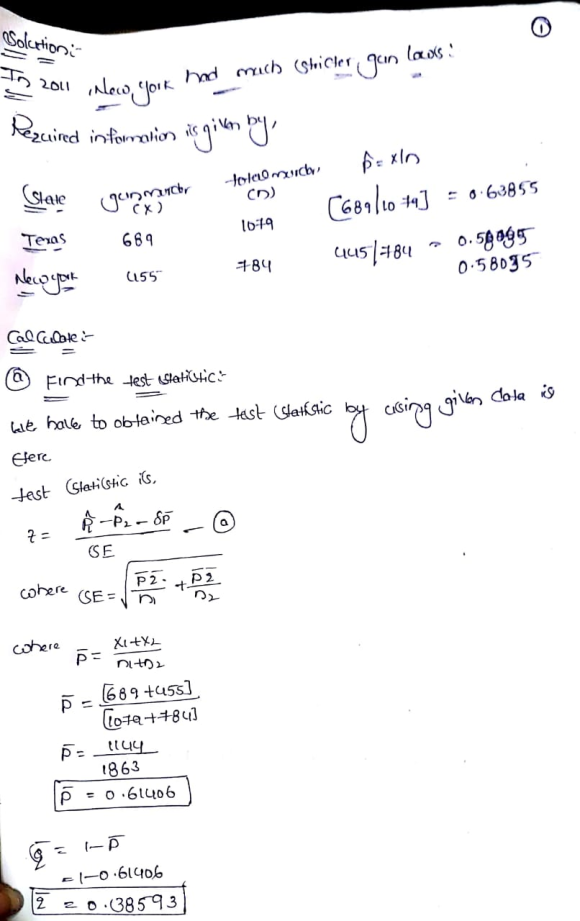 ①
Solution:-
In 2011, New york had much stricter gun laws:
Required information is given by,
State gun murder (x) total murder, (n) p̂ = x/n
Texas 689 1079 [689/1079] = 0.63855
New york 455 784 445/784 = 0.58035
Calculate:-
ⓐ Find the test statistic:-
We have to obtained the test statistic by using given data is
Here
test statistic is,
z = (p̂1 - p̂2 - δp) / SE — ⓐ
where SE = √(p̄q̄/n1 + p̄q̄/n2)
where p̄ = (x1+x2) / (n1+n2)
p̄ = [689+455] / [1079+784]
p̄ = 1144 / 1863
p̄ = 0.61406
q̄ = 1-p̄
=1-0.61406
q̄ = 0.38593